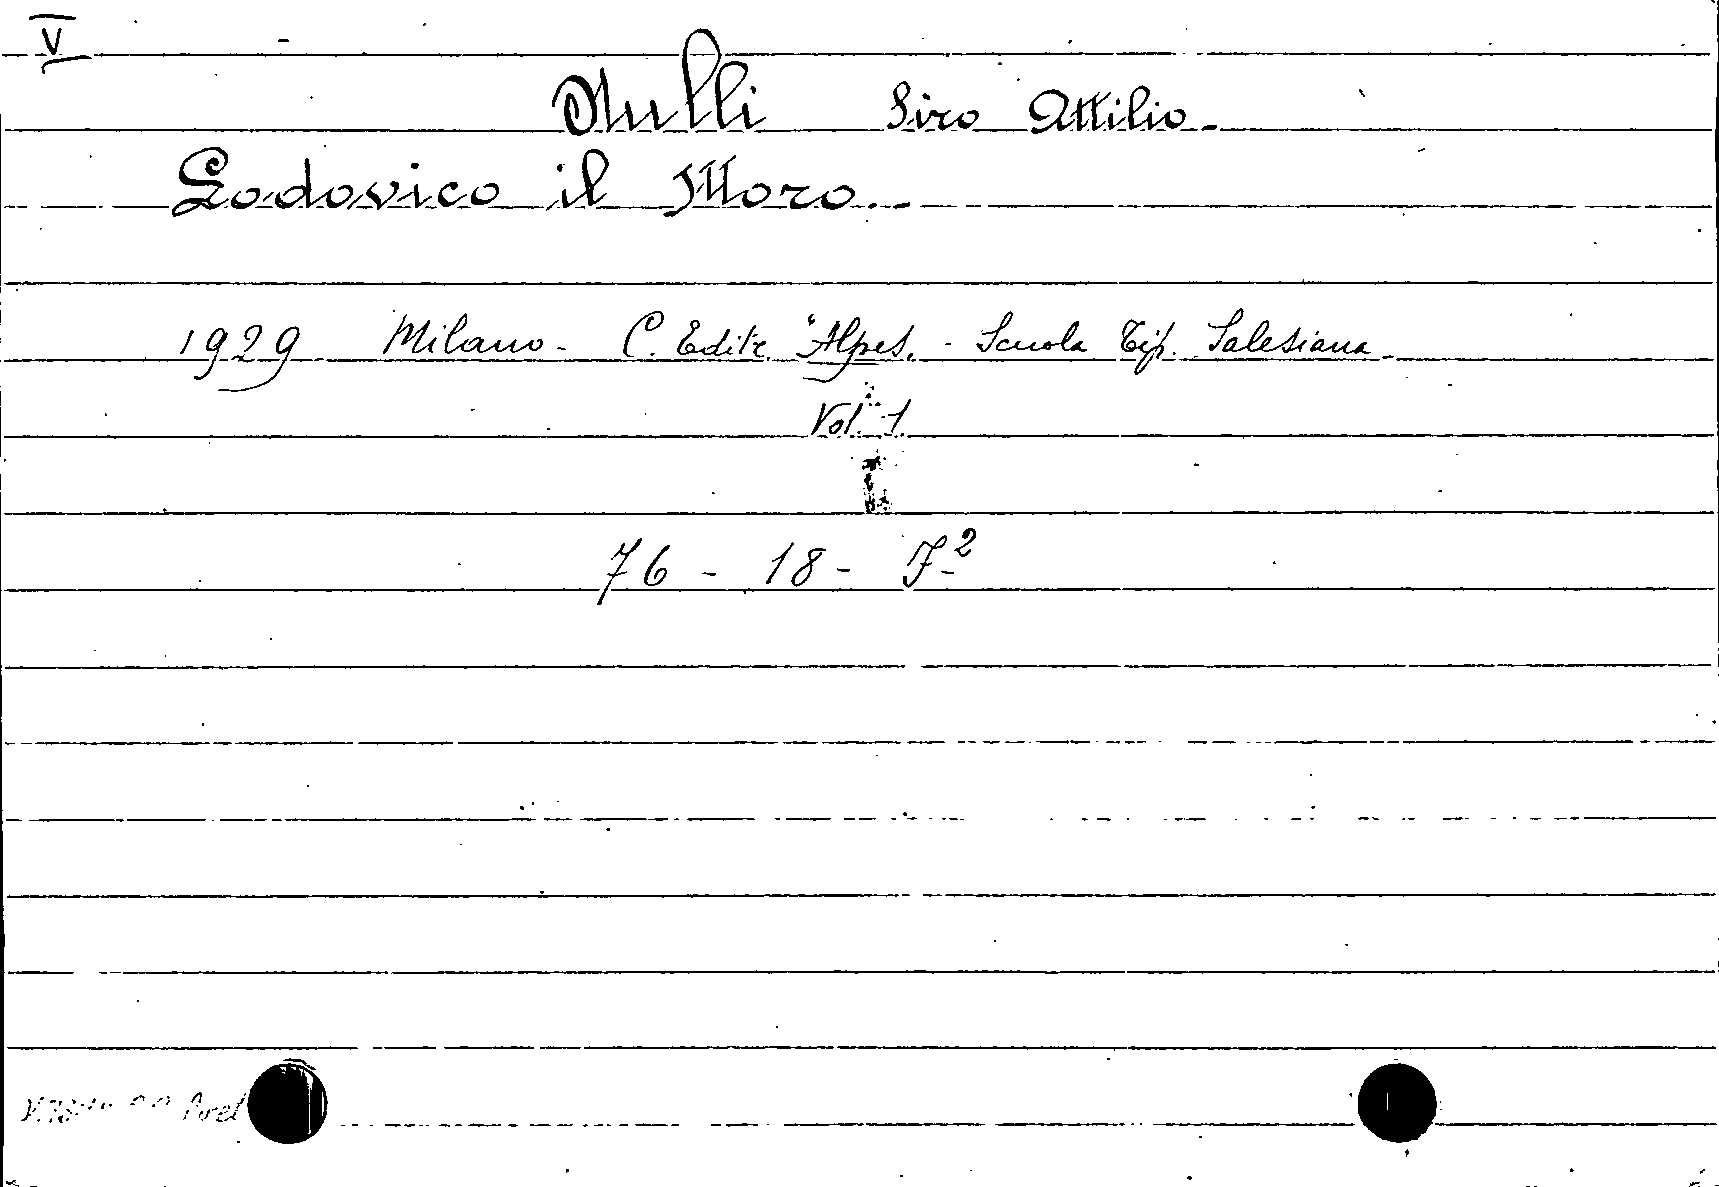 V
Nulli Siro Attilio -
Lodovico il Moro. -
1929 Milano - C. Editr. "Alpes. - Scuola Tip. Salesiana -
Vol. 1.
76 - 18 - F²